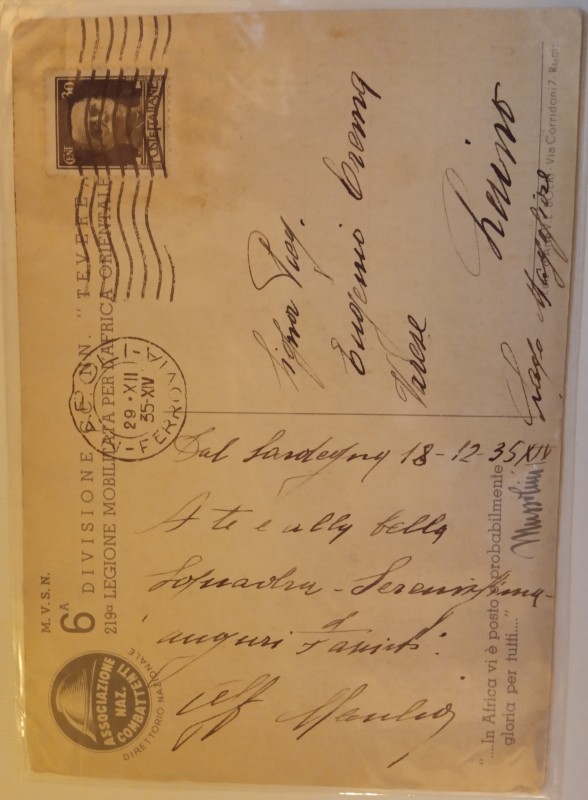 M. V. S. N.
6ª DIVISIONE CC. NN. "TEVERE"
219ª LEGIONE MOBILITATA PER L'AFRICA ORIENTALE
ASSOCIAZIONE
NAZ.
COMBATTENTI
DIRETTORIO NAZIONALE
CENT 30
POSTE ITALIANE
29 · XII
35-XIV
FERROVIA
Dal Sardegna 18-12-35 XIV
A te e alla bella
squadra - Serenissima -
auguri
aff
"....In Africa vi è posto e probabilmente
gloria per tutti...."
Mussolini
Sig.
Eugenio Crema
Varese
Luino
Lago Maggiore
Via Corridoni 7